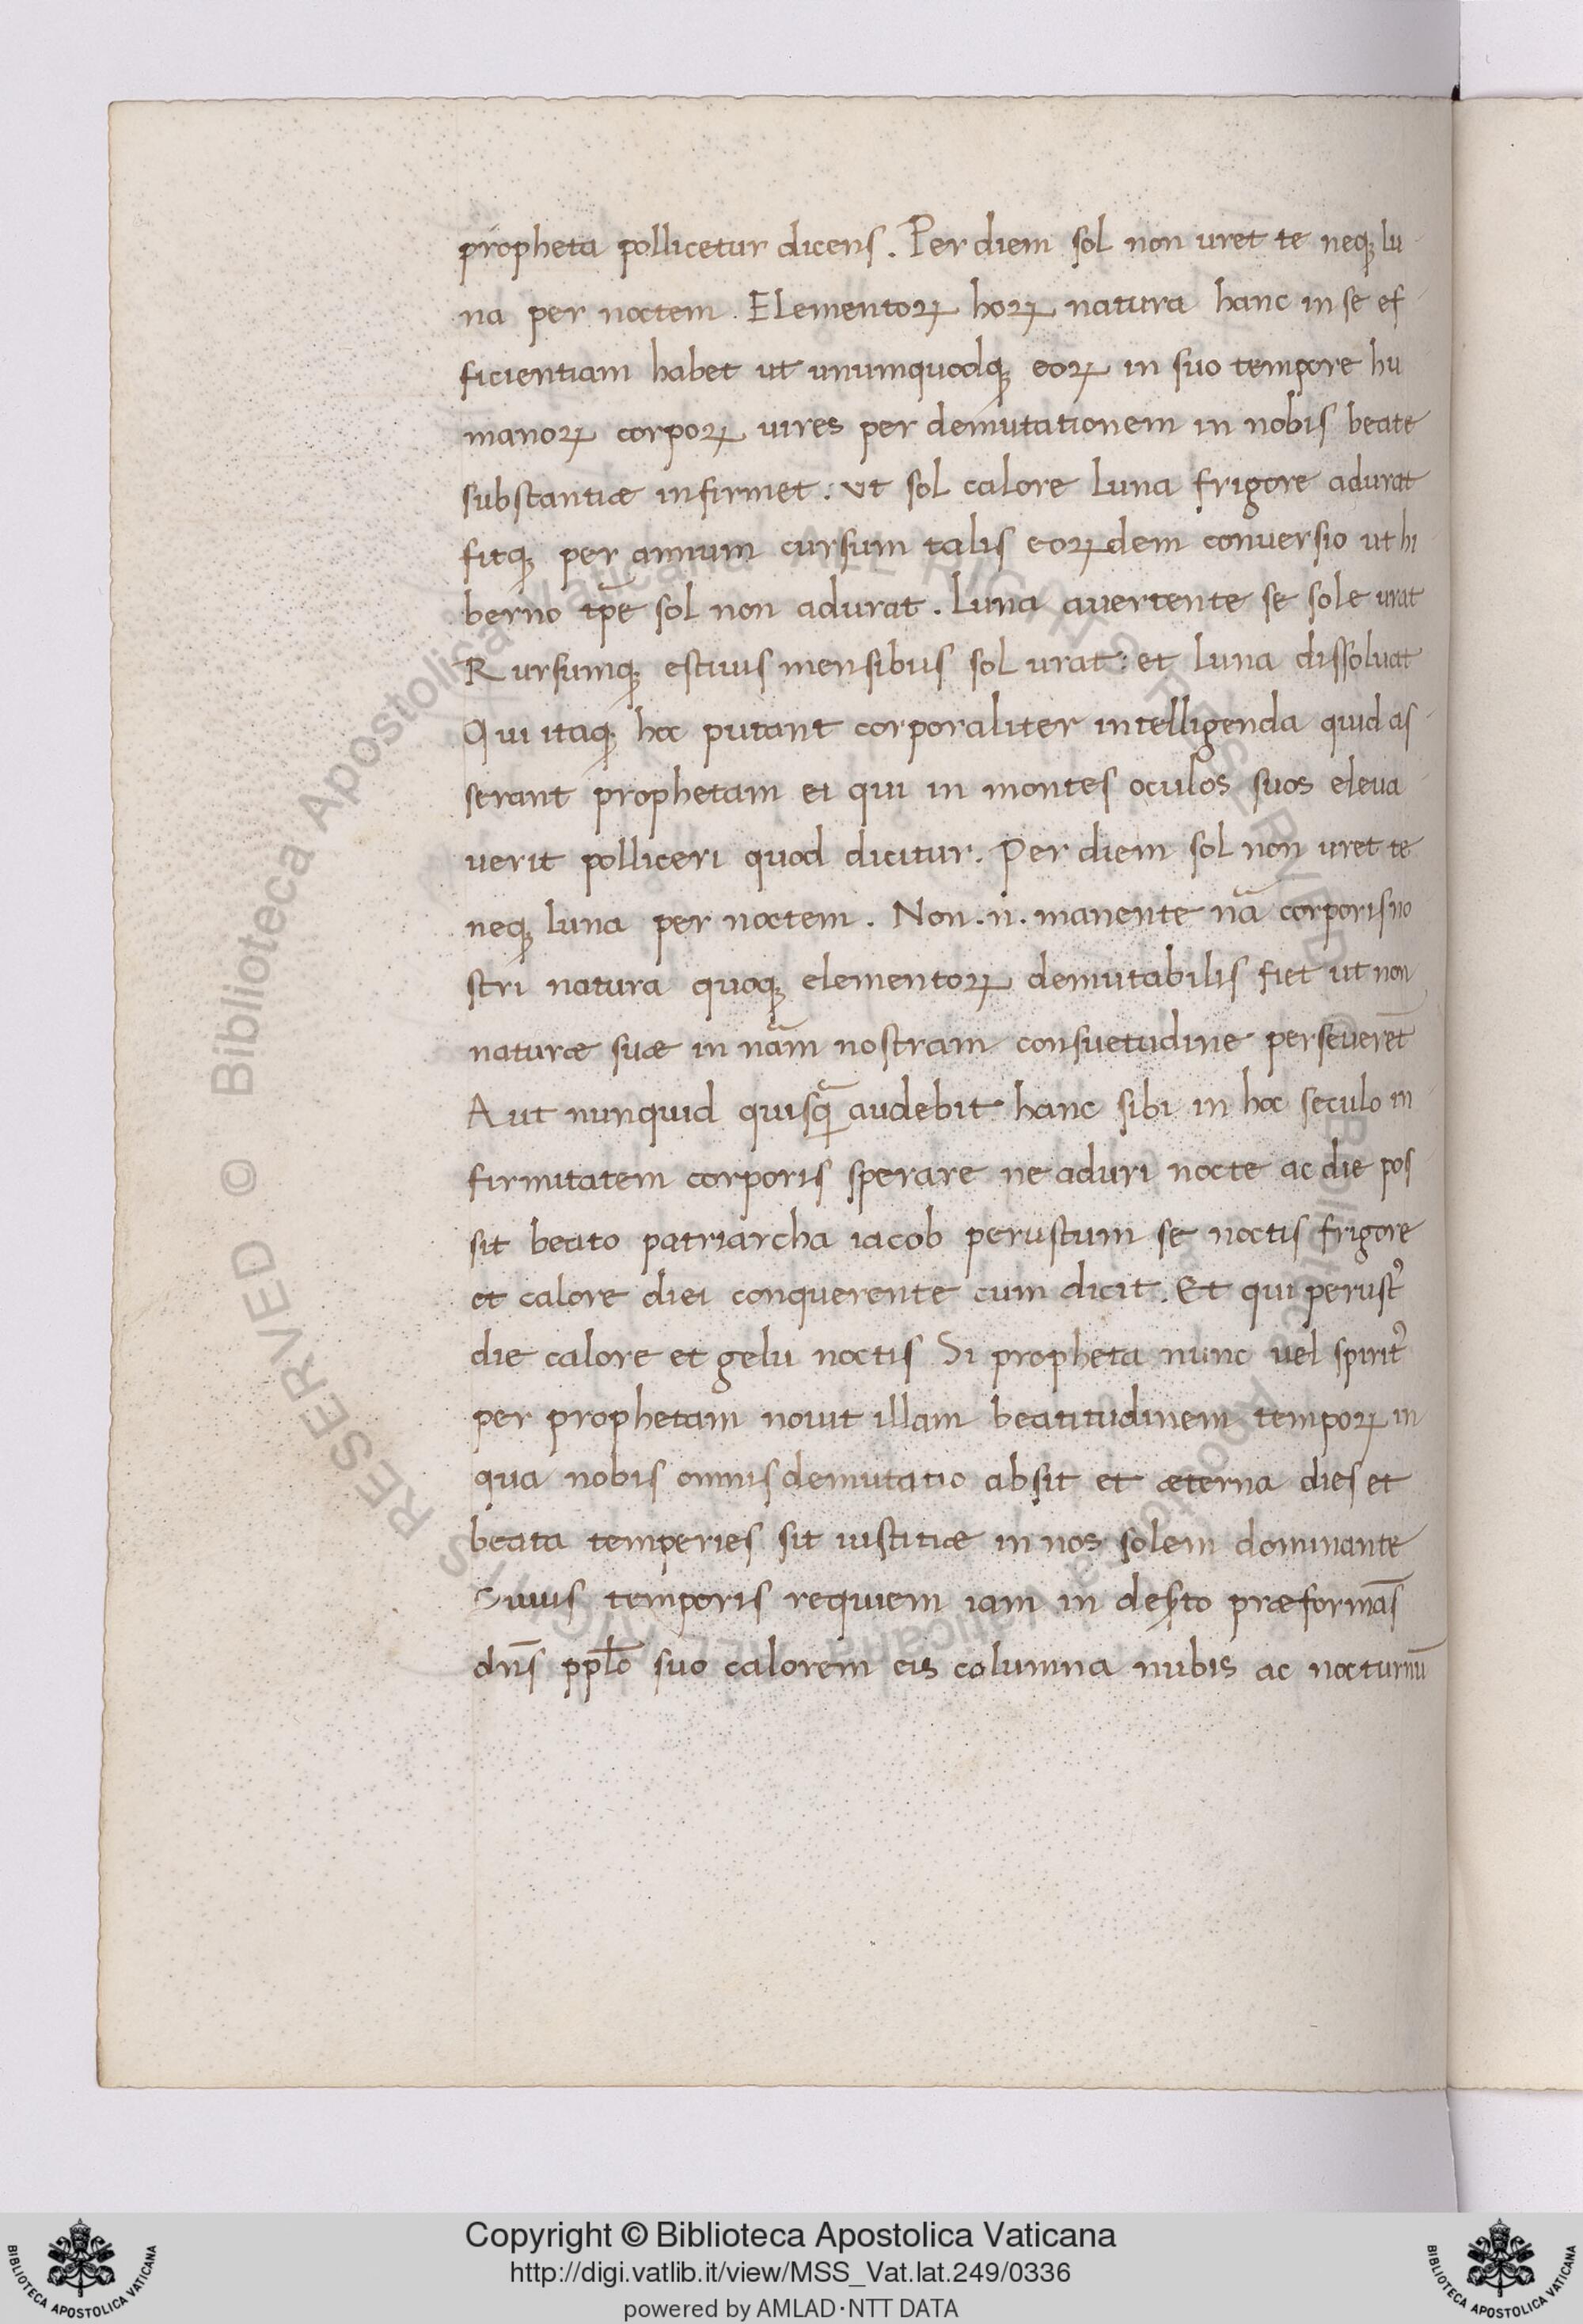 propheta pollicetur dicens. Per diem sol non uret te neqꝫ lu
na per noctem. Elementoꝝ hoꝝ natura hanc in se ef
ficientiam habet ut unumquodqꝫ eoꝝ in suo tempore hu
manoꝝ corpoꝝ uires per demutationem in nobis beate
substantiæ infirmet: ut sol calore luna frigore adurat
fitqꝫ per annum cursum talis eoꝝdem conuersio ut hi
berno tp̄e sol non adurat. Luna auertente se sole urat
Rursumqꝫ estiuis mensibus sol urat: et luna dissoluat
Qui itaqꝫ hoc putant corporaliter intelligenda quid as
serant prophetam ei qui in montes oculos suos eleua
uerit polliceri quod dicitur. Per diem sol non uret te
neqꝫ luna per noctem. Non .n. manente nã corporis no
stri natura quoqꝫ elementoꝝ demutabilis fiet ut non
naturæ suæ in nãm nostram consuetudine perseueret̄
Aut nunquid quisq̃ audebit hanc sibi in hoc seculo in
firmitatem corporis sperare ne aduri nocte ac die pos
sit beato patriarcha iacob perustum se noctis frigore
et calore diei conquerente cum dicit. Et qui perustꝰ
die calore et gelu noctis Si propheta nunc uel spiritꝰ
per prophetam nouit illam beatitudinem tempoꝝ in
qua nobis omnis demutatio absit et æterna dies et
beata temperies sit iustitiæ in nos solem dominante
Suius temporis requiem iam in desꝑto præformās
dn̄s ppl̄o suo calorem eis columna nubis ac nocturnū
Copyright © Biblioteca Apostolica Vaticana
http://digi.vatlib.it/view/MSS_Vat.lat.249/0336
powered by AMLAD·NTT DATA
BIBLIOTECA APOSTOLICA VATICANA
BIBLIOTECA APOSTOLICA VATICANA